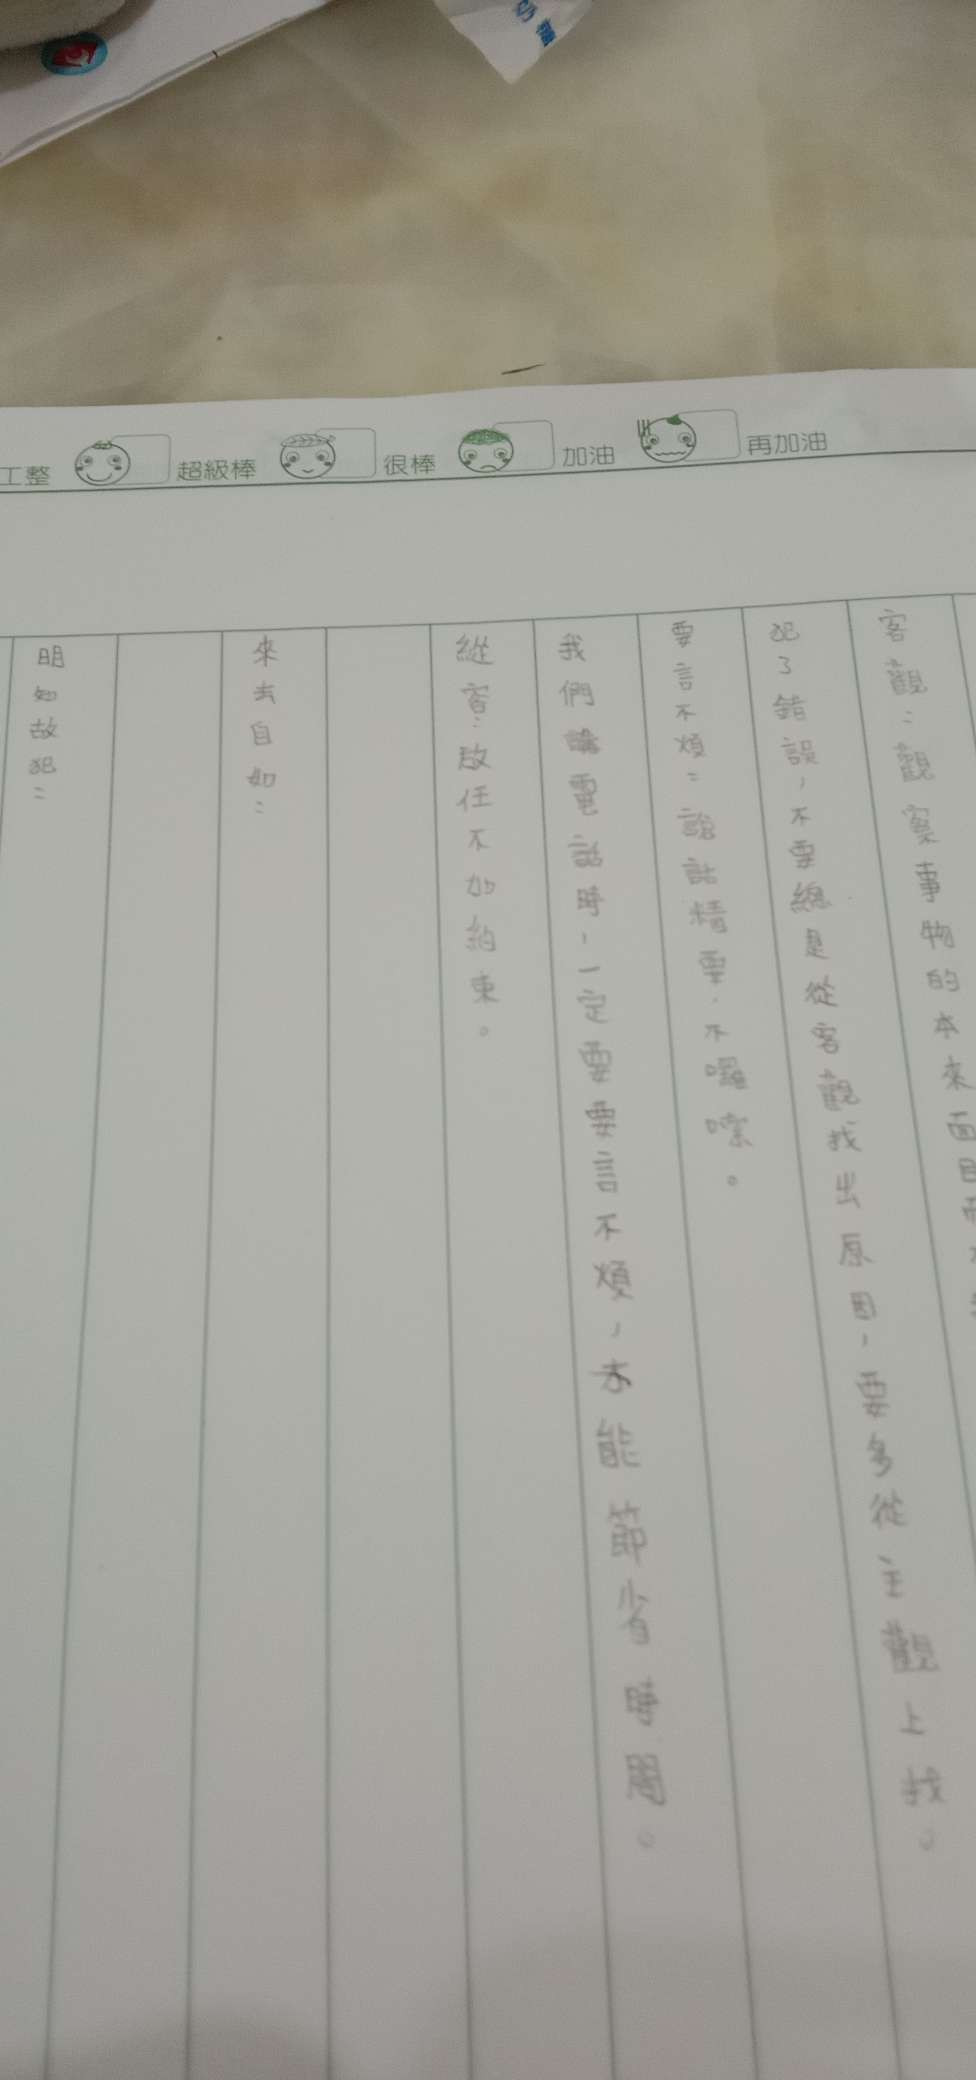 奶
工整 超級棒 很棒 加油 再加油
客觀：觀察事物的本來面目而
犯了錯誤，不要總是從客觀找出原因，要多從主觀上找。
要言不煩：說話精要，不囉嗦。
我們講電話時，一定要要言不煩，才能節省時間。
縱容：放任不加約束。
來去自如：
明知故犯：